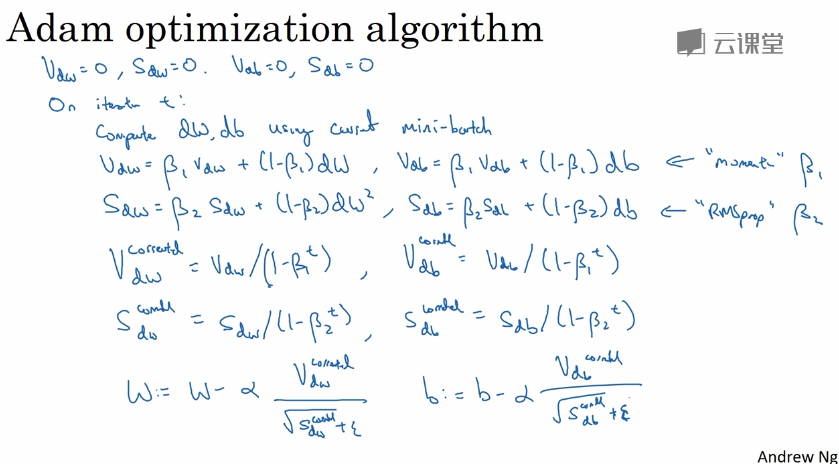 Adam optimization algorithm
云课堂
V_dw = 0, S_dw = 0. V_db = 0, S_db = 0
On iteratn t:
Compute dW, db using current mini-batch
V_dw = β₁ V_dw + (1-β₁) dW , V_db = β₁ V_db + (1-β₁) db ← "moment" β₁
S_dw = β₂ S_dw + (1-β₂) dW² , S_db = β₂ S_db + (1-β₂) db ← "RMSprop" β₂
V_dw^corrected = V_dw / (1-β₁^t) , V_db^corrected = V_db / (1-β₁^t)
S_dw^corrected = S_dw / (1-β₂^t) , S_db^corrected = S_db / (1-β₂^t)
W := W - α V_dw^corrected / (√S_dw^corrected + ε) b := b - α V_db^corrected / (√S_db^corrected + ε)
Andrew Ng